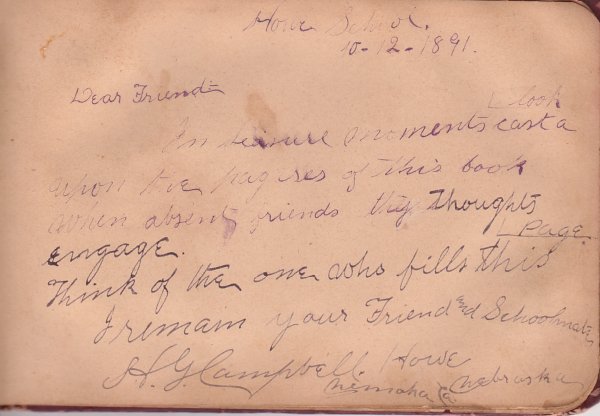 Howe School.
10-12-1891.
Dear Friend
look
In leisure moments cast a
upon the pages of this book
When absent friends thy thoughts
engage.
Page.
Think of the one who fills this
I remain your Friend and Schoolmate
H. G. Campbell. Howe
Nemaha Co. Nebraska